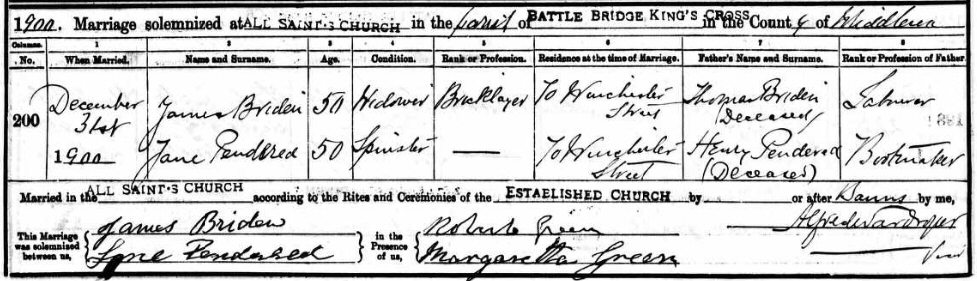 1900. Marriage solemnized at ALL SAINT'S CHURCH in the parish of BATTLE BRIDGE KING'S CROSS in the County of Middlesex
Columns. 1 2 3 4 5 6 7 8
No. When Married. Name and Surname. Age. Condition. Rank or Profession. Residence at the time of Marriage. Father's Name and Surname. Rank or Profession of Father
200 December 31st James Briden 50 Widower Bricklayer 70 Winchester Street Thomas Briden (Deceased) Labourer
1900 Jane Pendered 50 Spinster — 70 Winchester Street Henry Pendered (Deceased) Bootmaker
Married in the ALL SAINT'S CHURCH according to the Rites and Ceremonies of the ESTABLISHED CHURCH by or after Banns by me,
This Marriage was solemnized between us, James Briden Jane Pendered in the Presence of us, Robert Green Margaretta Green